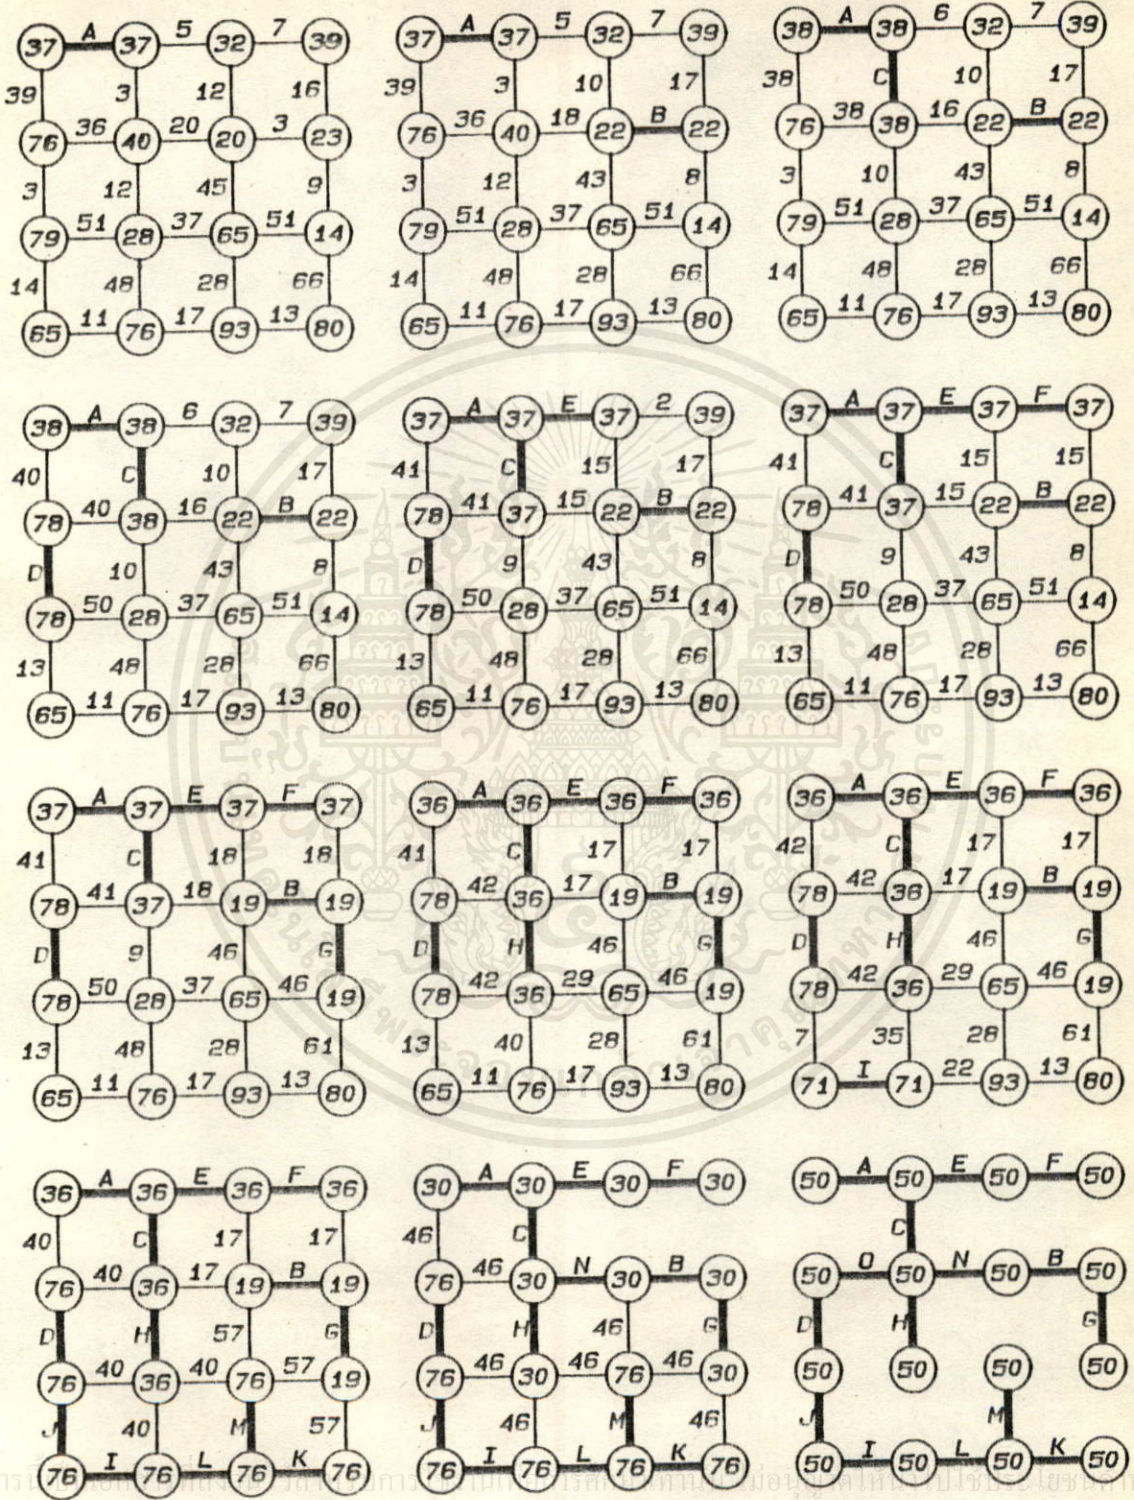 37 A 37 5 32 7 39
39 3 12 16
76 36 40 20 20 3 23
3 12 45 9
79 51 28 37 65 51 14
14 48 28 66
65 11 76 17 93 13 80
37 A 37 5 32 7 39
39 3 10 17
76 36 40 18 22 B 22
3 12 43 8
79 51 28 37 65 51 14
14 48 28 66
65 11 76 17 93 13 80
38 A 38 6 32 7 39
38 C 10 17
76 38 38 16 22 B 22
3 10 43 8
79 51 28 37 65 51 14
14 48 28 66
65 11 76 17 93 13 80
38 A 38 6 32 7 39
40 C 10 17
78 40 38 16 22 B 22
D 10 43 8
78 50 28 37 65 51 14
13 48 28 66
65 11 76 17 93 13 80
37 A 37 E 37 2 39
41 C 15 17
78 41 37 15 22 B 22
D 9 43 8
78 50 28 37 65 51 14
13 48 28 66
65 11 76 17 93 13 80
37 A 37 E 37 F 37
41 C 15 15
78 41 37 15 22 B 22
D 9 43 8
78 50 28 37 65 51 14
13 48 28 66
65 11 76 17 93 13 80
37 A 37 E 37 F 37
41 C 18 18
78 41 37 18 19 B 19
D 9 46 G
78 50 28 37 65 46 19
13 48 28 61
65 11 76 17 93 13 80
36 A 36 E 36 F 36
41 C 17 17
78 42 36 17 19 B 19
D H 46 G
78 42 36 29 65 46 19
13 40 28 61
65 11 76 17 93 13 80
36 A 36 E 36 F 36
42 C 17 17
78 42 36 17 19 B 19
D H 46 G
78 42 36 29 65 46 19
7 35 28 61
71 I 71 22 93 13 80
36 A 36 E 36 F 36
40 C 17 17
76 40 36 17 19 B 19
D H 57 G
76 40 36 40 76 57 19
J 40 M 57
76 I 76 L 76 K 76
30 A 30 E 30 F 30
46 C
76 46 30 N 30 B 30
D H 46 G
76 46 30 46 76 46 30
J 46 M 46
76 I 76 L 76 K 76
50 A 50 E 50 F 50
C
50 O 50 N 50 B 50
D H G
50 50 50 50
J M
50 I 50 L 50 K 50